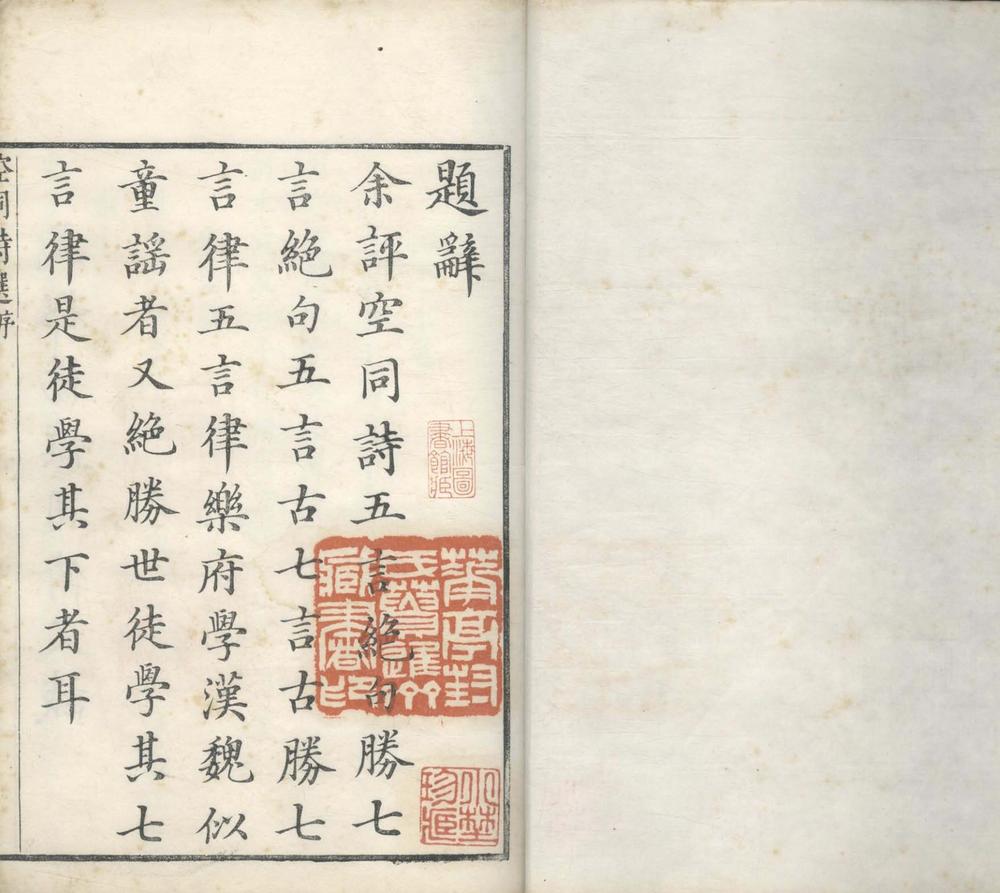 題辭
余評空同詩五言絕句勝七
言絕句五言古七言古勝七
言律五言律樂府學漢魏似
童謠者又絕勝世徒學其七
言律是徒學其下者耳
空同詩選序
上海圖
書館藏
華亭封
氏簣進齋
藏書印
小埜
珍藏